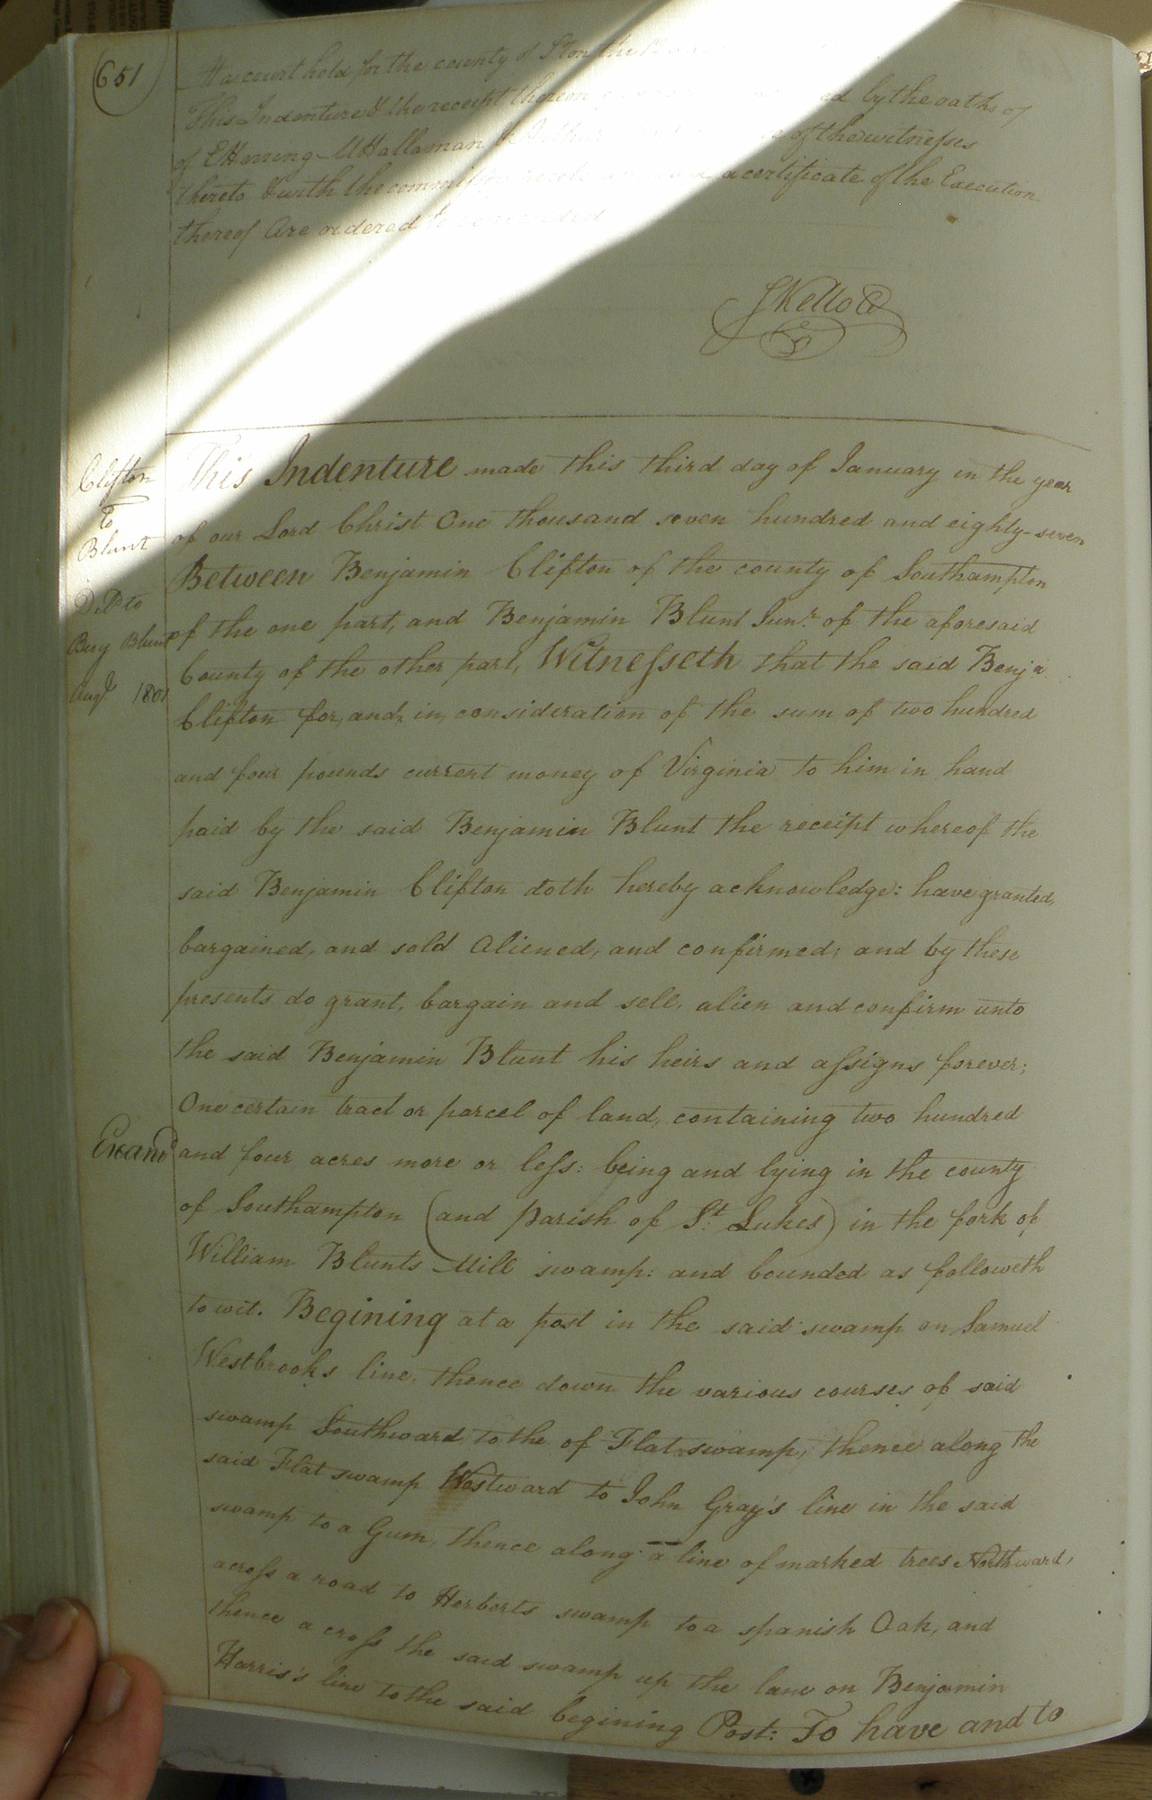 651
At a court held for the county of
This Indenture & the receipt thereon ed by the oaths of
of E Herring M Halloman of the witnesses
thereto & with the commis a certificate of the Execution
thereof Are ordered to be recorded
SKello C
Clifton
To
Blunt
Dd to
Benj Blunt
Augt 1801
Examd
This Indenture made this third day of January in the year
of our Lord Christ One thousand seven hundred and eighty-seven
Between Benjamin Clifton of the county of Southampton
of the one part, and Benjamin Blunt Junr. of the aforesaid
County of the other part, Witnesseth that the said Benja
Clifton for, and, in, consideration of the sum of two hundred
and four pounds current money of Virginia to him in hand
paid by the said Benjamin Blunt the receipt whereof the
said Benjamin Clifton doth hereby acknowledge: have granted,
bargained, and sold Aliened, and confirmed, and by these
presents do grant, bargain and sell, alien and confirm unto
the said Benjamin Blunt his heirs and assigns forever;
One certain tract or parcel of land, containing two hundred
and four acres more or less: being and lying in the county
of Southampton (and parish of St. Lukes) in the fork of
William Blunts Mill swamp: and bounded as followeth
to wit. Begining at a post in the said swamp on Samuel
Westbrooks line, thence down the various courses of said
swamp Southward to the of Flat swamp, thence along the
said Flat swamp Westward to John Gray's line in the said
swamp to a Gum, thence along a line of marked trees Northward,
across a road to Herberts swamp to a spanish Oak, and
thence a cross the said swamp up the lane on Benjamin
Harris's line to the said begining Post: To have and to